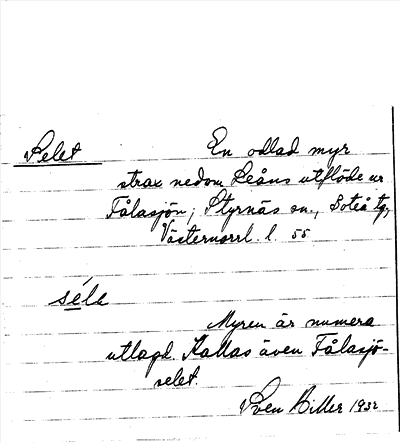 Selet
En odlad myr
strax nedom Leåns utflöde ur
Fålasjön; Styrnäs sn., Boteå tg,
Västernorrl. l. 55
séle
Myren är numera
utlagd. Kallas även Fålasjö-
selet.
Sven Hiller 1932